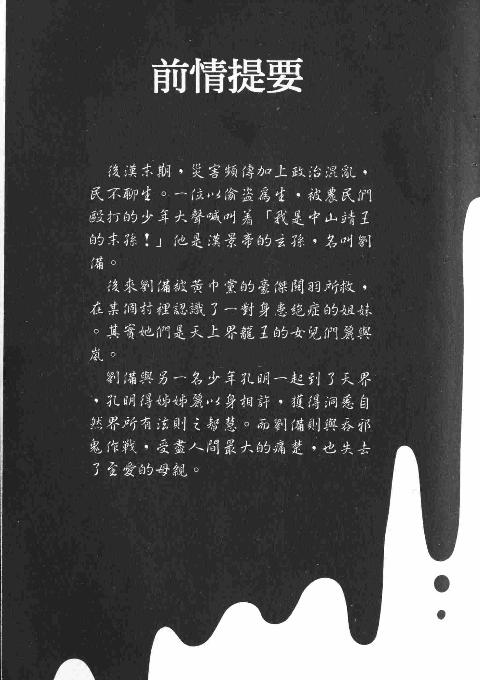 前情提要
後漢末期，災害頻傳加上政治混亂，
民不聊生。一位以偷盜為生，被農民們
毆打的少年大聲喊叫着「我是中山靖王
的末孫！」他是漢景帝的玄孫，名叫劉
備。
後來劉備被黃巾黨的豪傑關羽所救，
在某個村裡認識了一對身患絕症的姐妹
。其實她們是天上界龍王的女兒們麗與
嵐。
劉備與另一名少年孔明一起到了天界
，孔明得姊姊麗以身相許，獲得洞悉自
然界所有法則之智慧。而劉備則與吞邪
鬼作戰，受盡人間最大的痛楚，也失去
了至愛的母親。